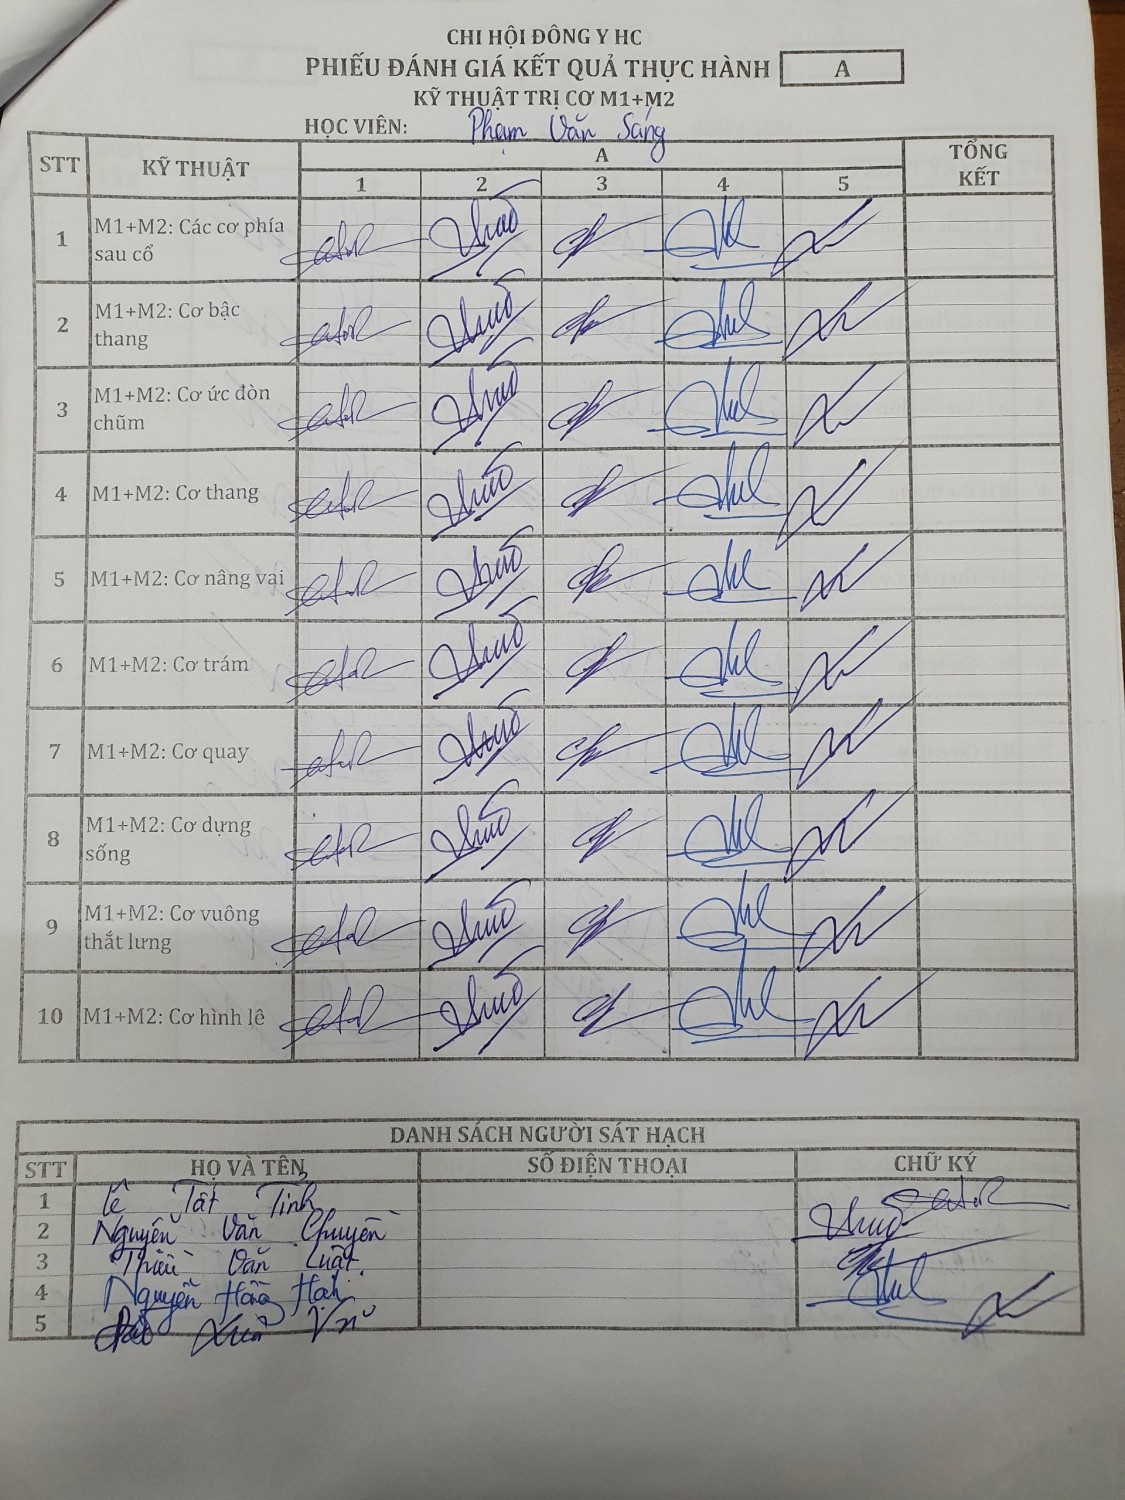 CHI HỘI ĐÔNG Y HC
PHIẾU ĐÁNH GIÁ KẾT QUẢ THỰC HÀNH A
KỸ THUẬT TRỊ CƠ M1+M2
HỌC VIÊN: Phạm Văn Sáng
STT KỸ THUẬT A TỔNG KẾT
1 2 3 4 5
1 M1+M2: Các cơ phía sau cổ
2 M1+M2: Cơ bậc thang
3 M1+M2: Cơ ức đòn chũm
4 M1+M2: Cơ thang
5 M1+M2: Cơ nâng vai
6 M1+M2: Cơ trám
7 M1+M2: Cơ quay
8 M1+M2: Cơ dựng sống
9 M1+M2: Cơ vuông thắt lưng
10 M1+M2: Cơ hình lê
DANH SÁCH NGƯỜI SÁT HẠCH
STT HỌ VÀ TÊN SỐ ĐIỆN THOẠI CHỮ KÝ
1 Lê Tất Tính
2 Nguyễn Văn Chuyền
3 Thiều Văn Luật
4 Nguyễn Hồng
5 Xuân